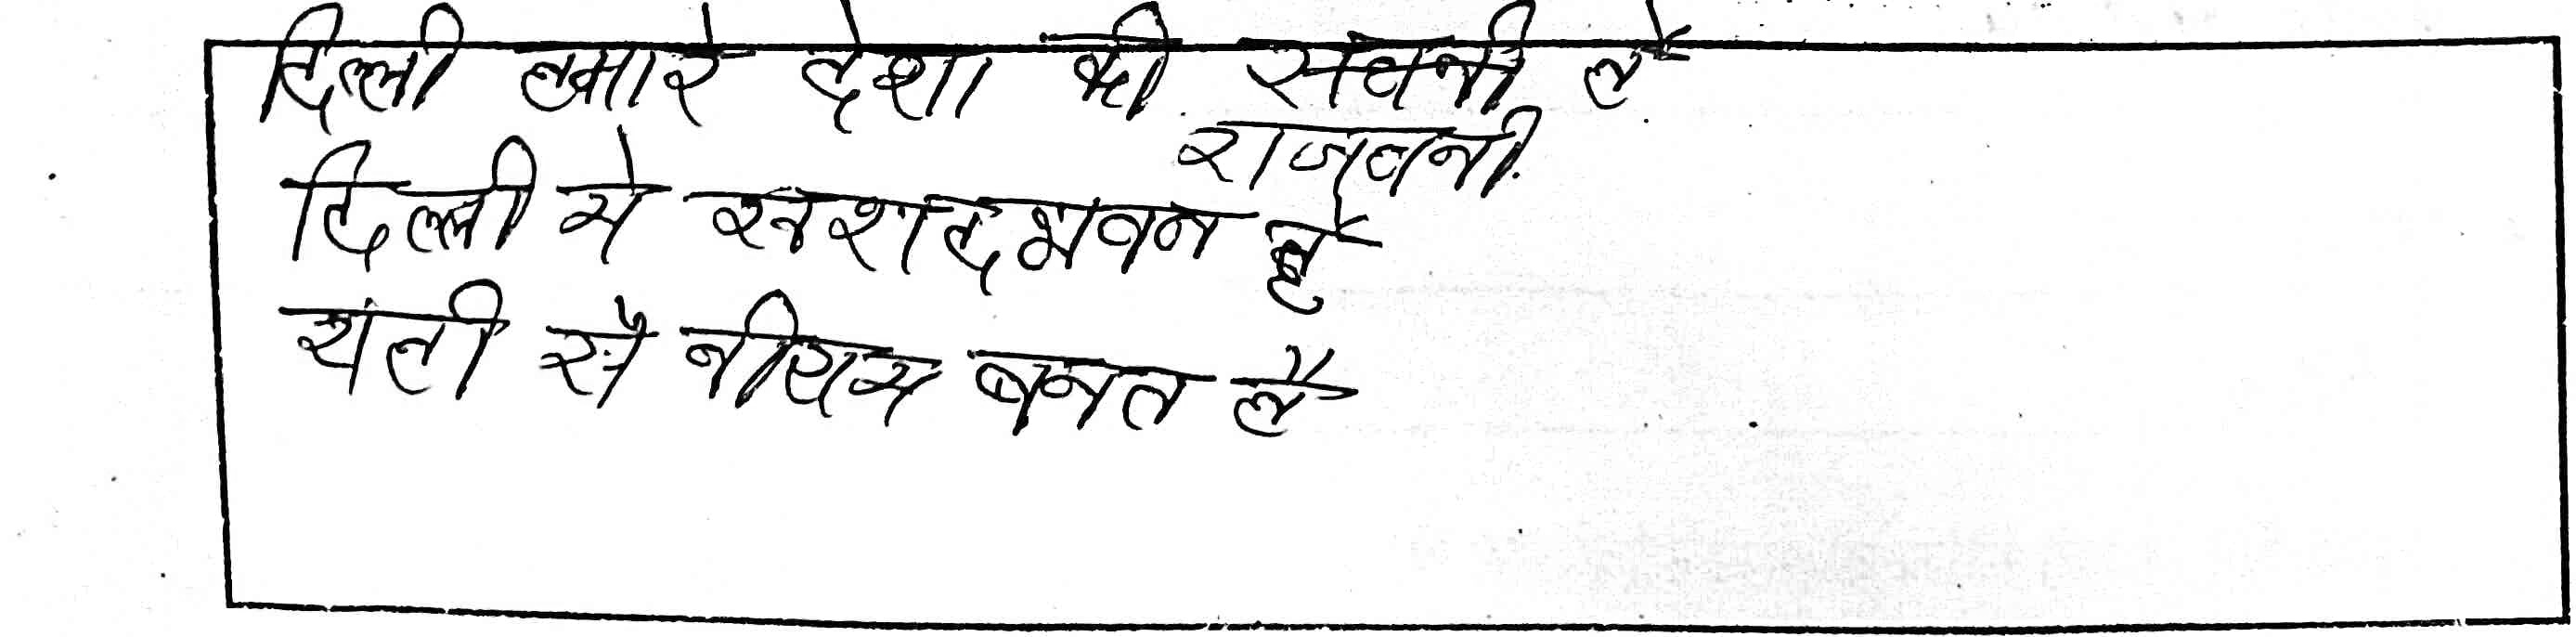 दिल्ली हमारे देशा की सधनी है
राजधनी
दिल्ली मे सनशदभवन है
यंही सै नीयम बनत है